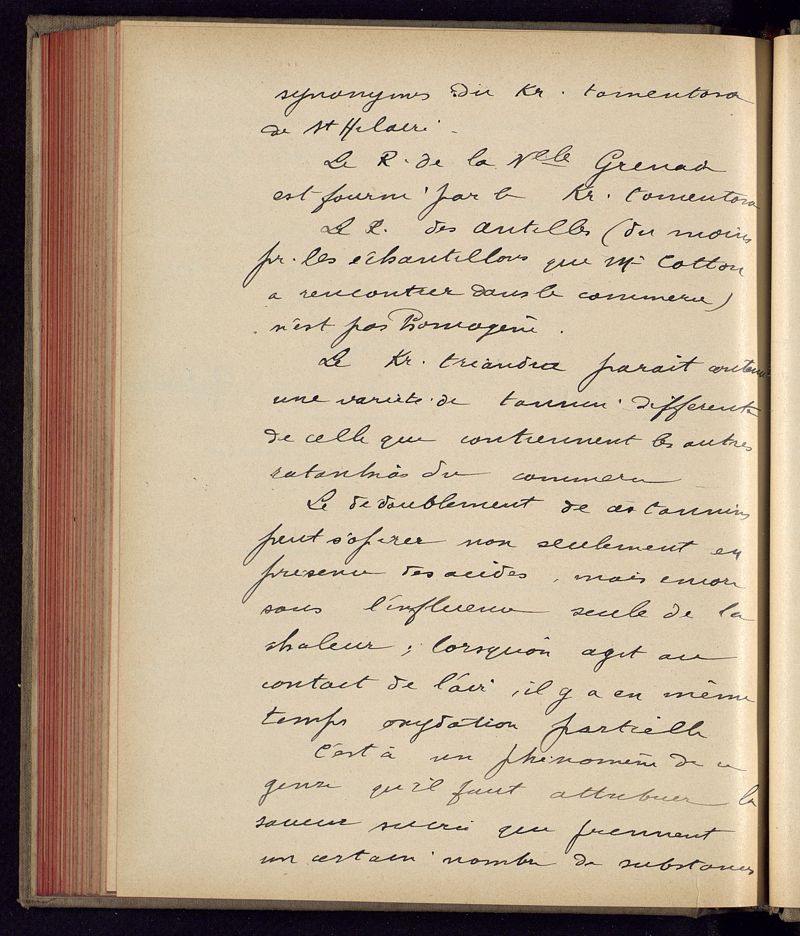 synonymes du Kr. tomentosa
de St Hilaire.
Le R. de la Nlle Grenade
est fourni par le Kr. tomentosa
Le R. des Antilles (du moins
pr. les échantillons que Mr Cotton
a rencontrer dans le commerce)
n'est pas homogène.
Le Kr. triandra parait contenir
une variété de tannin différente
de celle que contiennent les autres
ratanhias du commerce
Le dedoublement de ces tannins
peut s'opérer non seulement en
présence des acides, mais encore
sous l'influence seule de la
chaleur; lorsqu'on agit au
contact de l'air, il y a en même
temps oxydation partielle
C'est à un phénomène de ce
genre qu'il faut attribuer la
saveur sucrée que prennent
un certain nombre de substances